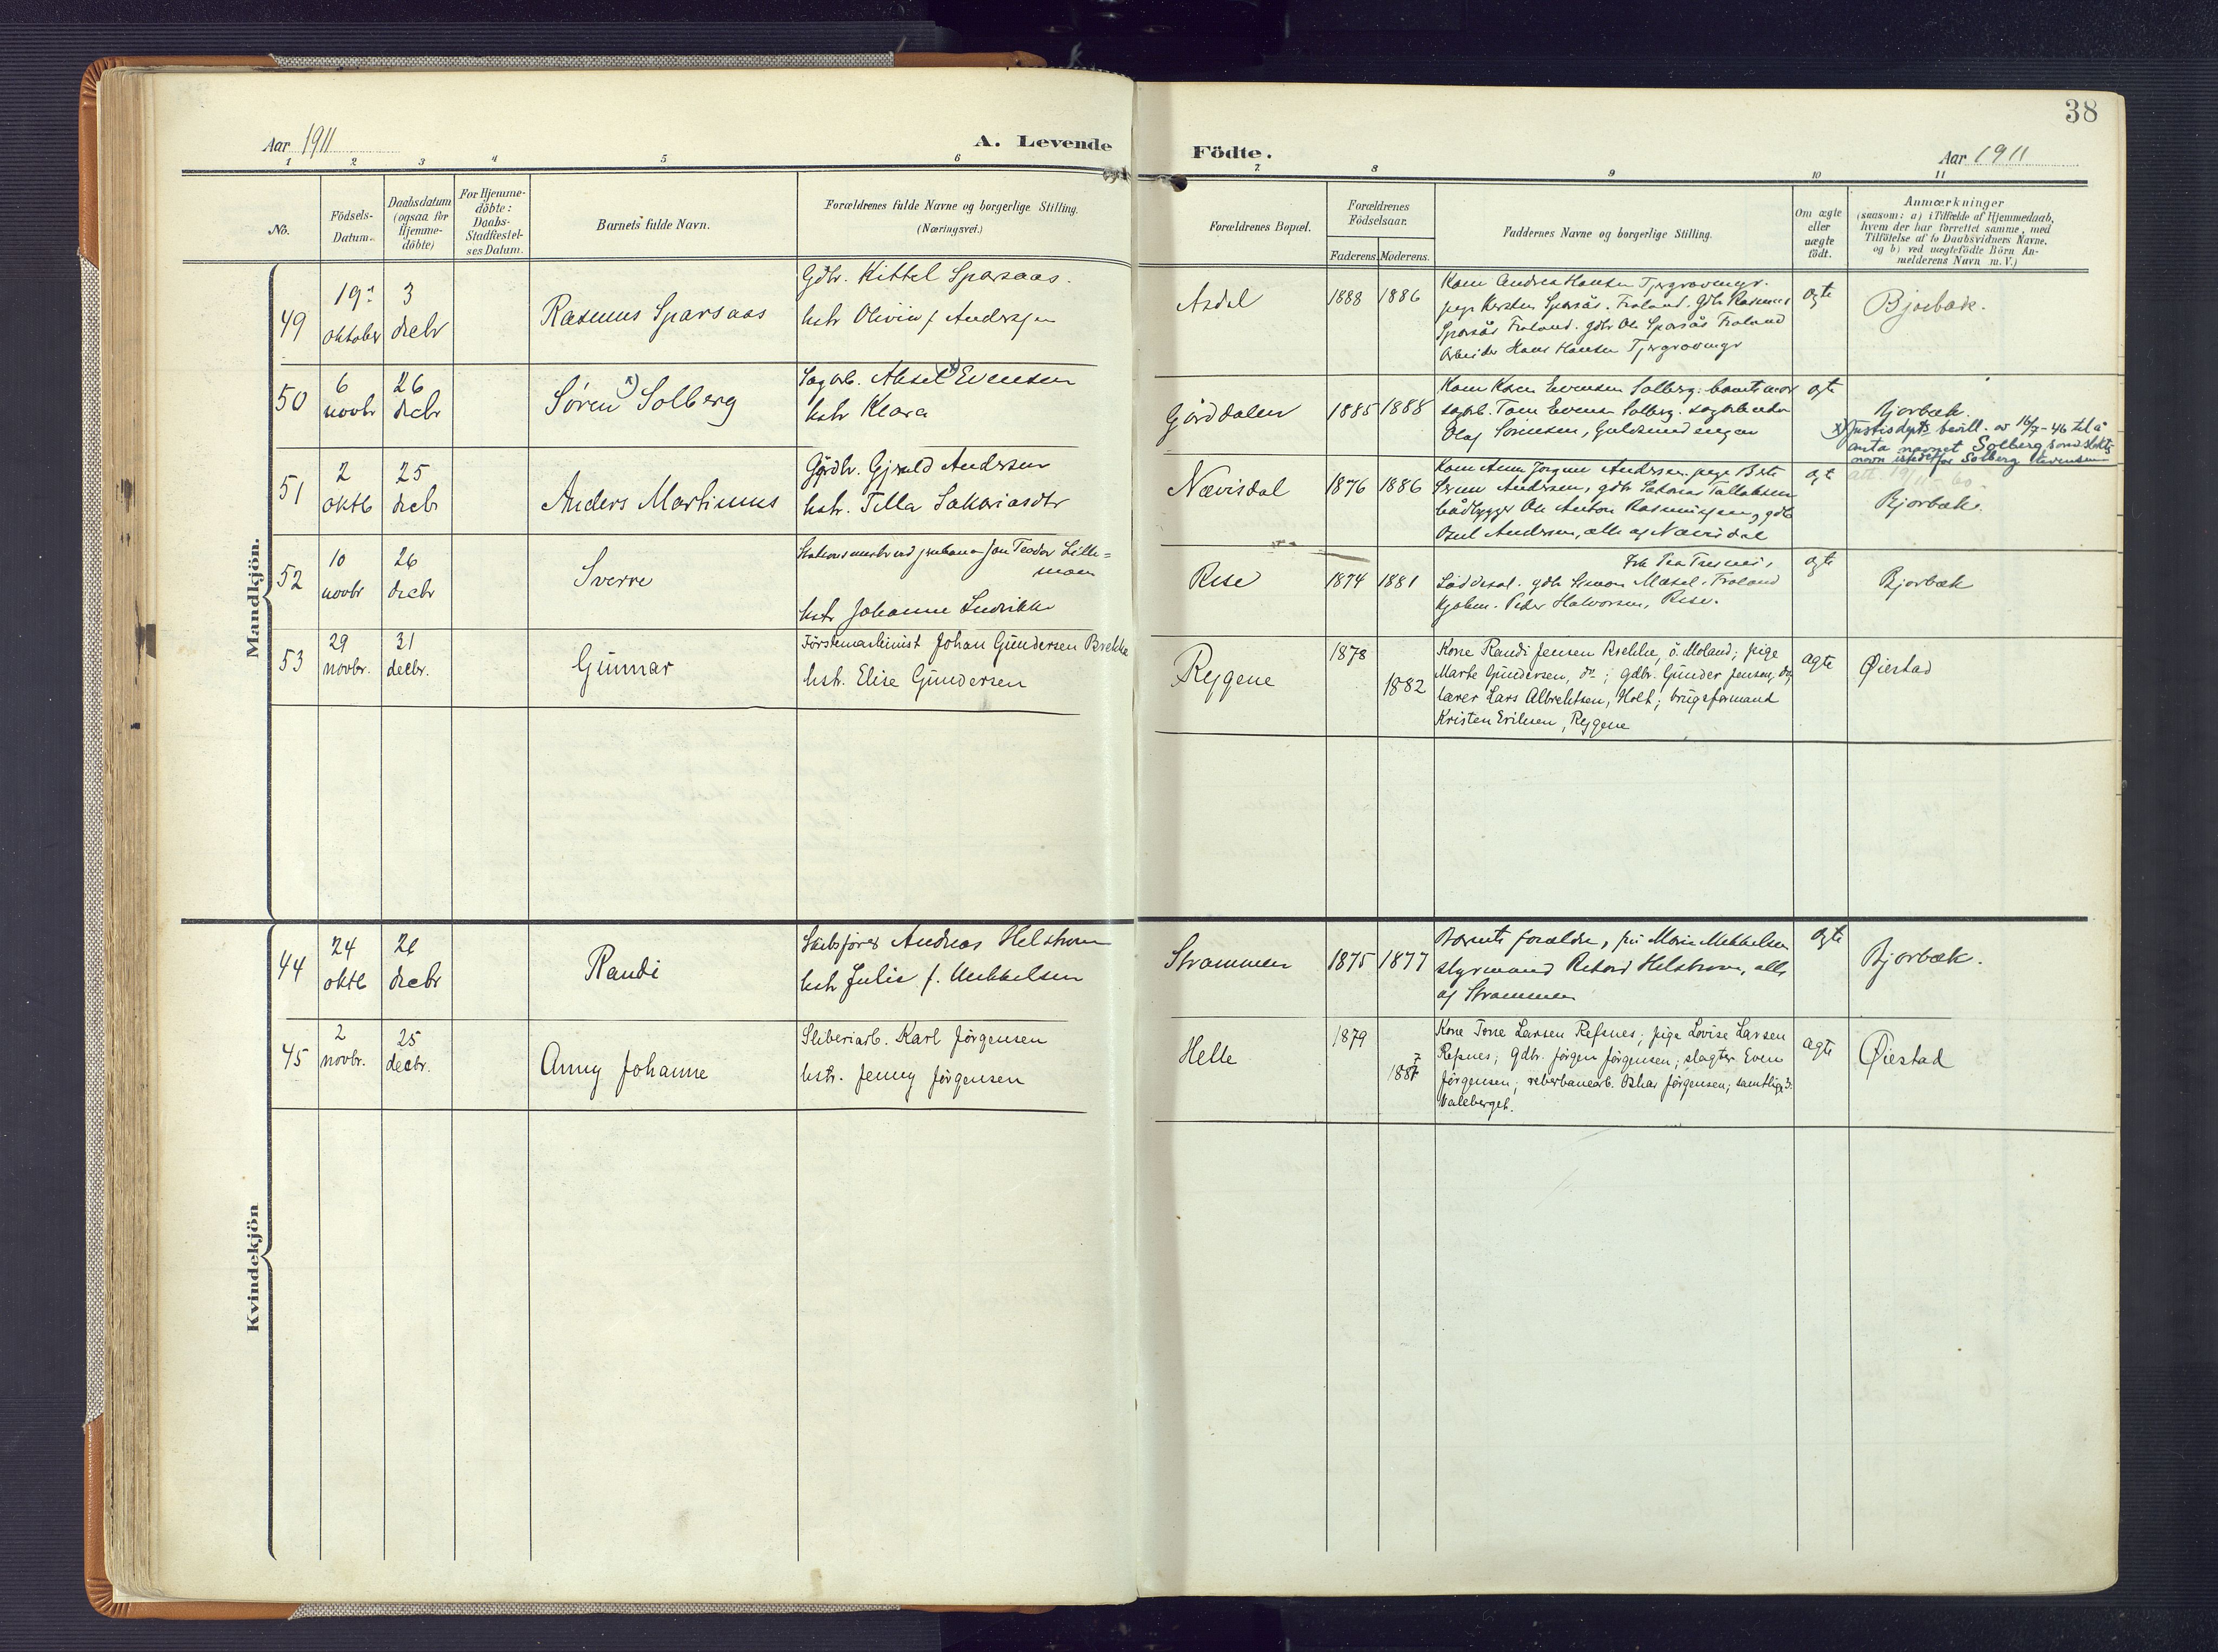 38
Aar 1911
A. Levende Födte.
Aar 1911
1 2 3 4 5 6 7 8 9 10 11
No.
Födsels-
Datum.
Daabsdatum
(ogsaa for
Hjemme-
döbte)
For Hjemme-
döbte:
Daabs-
Stadfæstel-
ses Datum.
Barnets fulde Navn.
Forældrenes fulde Navne og borgerlige Stilling.
(Næringsvei.)
Forældrenes Bopæl.
Forældrenes
Födselsaar.
Faderens. Moderens.
Faddernes Navne og borgerlige Stilling.
Om ægte
eller
uægte
födt.
Anmærkninger
(saasom: a) i Tilfælde af Hjemmedaab,
hvem der har forrettet samme, med
Tilföielse af to Daabsvidners Navne.
og b) ved uægtefödte Börn An-
melderens Navn m. V.)
Mandkjön.
49
19de
oktober
3
decbr
Rasmus Sparsaas
Gdbr. Kittel Sparsaas.
hstr Olivia f. Andersen
Asdal
1888 1886
Kone Andrea Hansen Tjergravmyr.
pige Kirsten Sparsås. Froland. gdbr Rasmus
Sparsås Froland. gdbr Ole Sparsås Froland
Arbeider Hans Hansen Tjergravmyr
ægte
Bjorbæk.
50
6
novbr
26
decbr
Søren x) Solberg
Sagarb. Aksel x) Evensen
hstr Klara
Gårddalen
1885 1888
Kone Karen Evensen Solberg. barnets mor
sagarb. Tom Evensen Solberg. sagarbeider
Olaf Sørensen, Guldsmedengen
ægte
Bjorbæk.
x) Justisdepts bevill. av 16/7-46 til å
anta navnet Solberg som slekts-
navn istedetfor Solberg Evensen
51
2
oktb
25
decbr
Anders Martinus
Gårdbr. Gjeruld Andersen
hstr. Tilla Sakariasdtr
Nævisdal
1876 1886
Kone Anne Jorgine Andersen. pige Berte
Serine Andersen, gdbr Sakarias Tallaksen
bådbygger Ole Anton Rasmussen, gdb
Osul Andersen, alle af Nævisdal
ægte
Bjorbæk.
52
10
novbr
26
decbr
Sverre
Stationsmester ved jernbanen Jon Teodor Lille=
moen
hstr Johanne Ludvikke
Rise
1874 1881
Frk Tea Tresnes,
Løddesøl. gdbr Simon Mæsel, Froland
Kjøbm. Peder Halvorsen, Rise.
ægte
Bjorbæk
53
29
novbr.
31
decbr.
Gunnar
Förstemaskinist Johan Gundersen Brekke
hstr. Elise Gundersen
Rygene
1878
1882
Kone Randi Jensen Brekke, ö. Moland; pige
Marte Gundersen, do; gdbr. Gunder Jensen, do;
lærer Lars Albrektsen, Holt; brugsformand
Kristen Eriksen, Rygene
ægte
Øiestad
Kvindekjön
44
24
oktb
26
decbr
Randi
Skibsfører Andreas Helstrøm
hstr Julie f. Mikkelsen
Strømmen
1875 1877
Barnets forældre, fru Marie Mikkelsen
styrmand Rikard Helstrøm, alle
af Strømmen
ægte
Bjorbæk.
45
2
novbr.
25
decbr.
Anny Johanne
Sliberiarb. Karl Jörgensen
hstr. Jenny Jörgensen
Helle
1879
1887
Kone Tone Larsen Refsnes; pige Lovise Larsen
Refsnes; gdbr. Jörgen Jörgensen; slagter Even
Jörgensen; reberbanearb. Oskar Jörgensen; samtlige 3:
Valeberget.
ægte
Øiestad